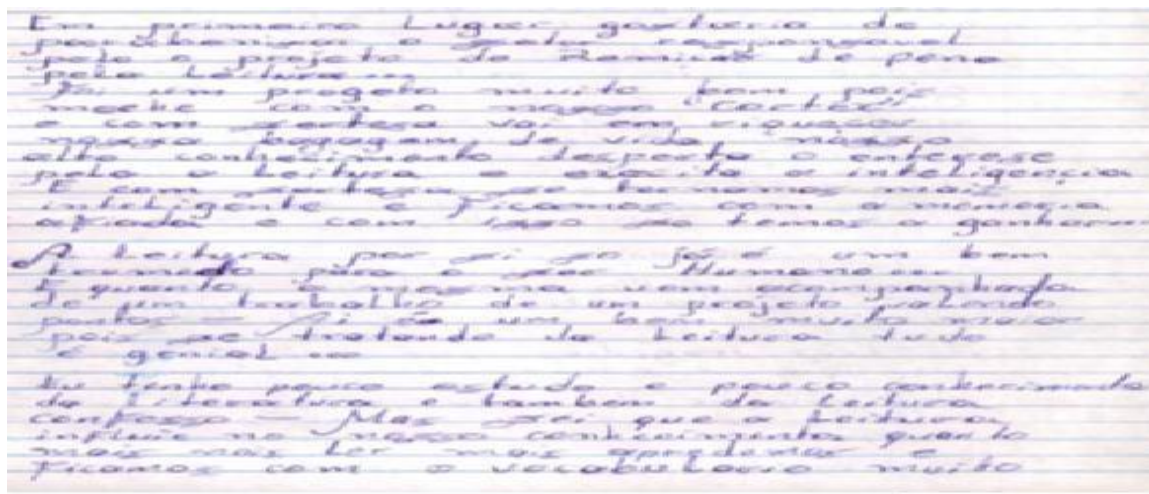 Em primeiro Lugar gostaria de
parabenizar o setor responsavel
pelo o projeto da Remição de pena
pela Leitura...
Foi um progeto muito bom pois
meche com o nosso "Cortéx"
e com serteza vai em riquecer
nossa bagagem de vida nosso
alto conhecimento desperta o enterese
pela a Leitura e exscita a inteligencia
E com serteza se tornamos mais
inteligente e ficamos com a memoria
afiada e com isso so temos a ganhar
A Leitura por si so já é um bem
para o ser Humano...
E quanto a mesma vem acompanhada
de um trabalho de um projeto valendo
pontos — Ai é um bem muito maior
pois se tratando da Leitura tudo
é genial...
Eu tenho pouco estudo e pouco conhecimento
da Literatura e tambem da Leitura
confesso — Mas sei que a Leitura
influie no nosso conhecimento quanto
mais nós Ler mais apredemos e
ficamos com o vocabulario muito